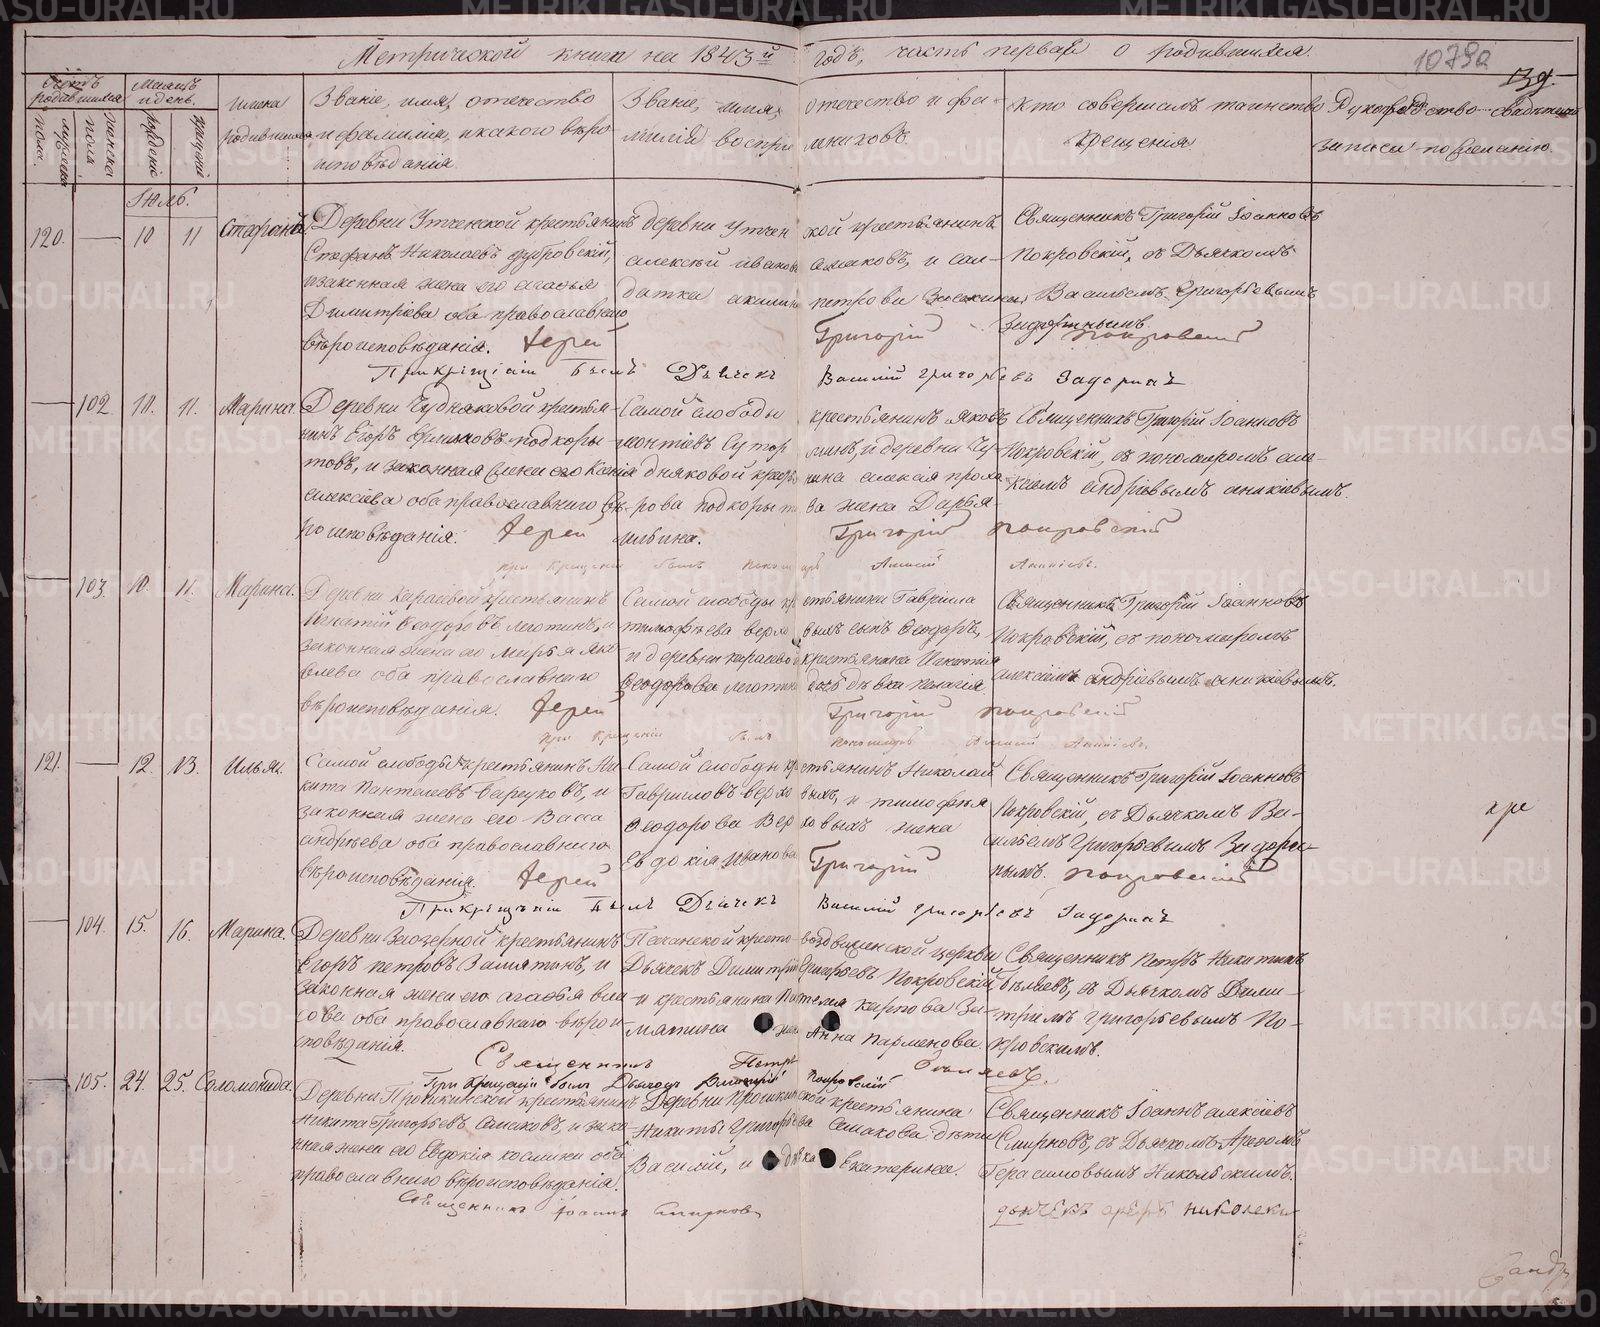 Метрической книги на 1843й годъ, часть первая о родившихся.
1079а
39.
Счетъ родившихся
Мѣсяцъ и день.
имена родившихся
Званіе, имя, отечество и фамилія, и какого вѣроисповѣданія.
Званіе, имя, отечество и фамилія воспріемниковъ.
Кто совершалъ таинство крещенія
Рукоприкладство свидѣтелей записи по желанію.
мужеска пола.
женска пола
рожденія
крещенія
Іюль.
120. — 10 11
Деревни Утченской крестьянинъ
Стефанъ Николаевъ Дубровскій,
и законная жена его Агафья
Димитріева оба православнаго
вѣроисповѣданія.
деревни Утчен
ской крестьянинъ
Алексѣй Иванов
Семаковъ, и сол-
датка Акилина
петрова
Священникъ Григорій Іоанновъ
Покровскій, съ Дьячкомъ
Василіемъ Григорьевымъ
Задоринымъ.
Іерей Григорій Покровскій
При крещеніи былъ Дьячекъ Василій Григорьевъ Задоринъ
— 102. 10. 11. Марина.
Деревни Чудняковой крестья-
нинъ Егоръ Филиповъ Подкоры-
товъ, и законная жена его Ксенія
Алексіева оба православнаго вѣ-
роисповѣданія.
Самой слободы крестьянинъ Яковъ
Леонтіевъ
и деревни Чу-
дняковой
ва жена Дарья
Ильина.
Священникъ Григорій Іоанновъ
Покровскій, съ пономаремъ Але-
ксіемъ Андріевымъ Аникіевымъ.
Іерей Григорій Покровскій
при крещеніи былъ пономарь Алексій Аникіевъ.
— 103. 10. 11. Марина.
Деревни Карасевой крестьянинъ
Игнатій Ѳеодоровъ Леготинъ, и
законная жена его Марья Яко-
влева оба православнаго
вѣроисповѣданія.
Самой слободы крестьянина Гавріила
Тимофѣева Верхо
выхъ сынъ Ѳеодоръ,
и деревни Карасевой
крестьянина Игнатія
Ѳеодорова Леготина
дочь дѣвка Пелагія
Священникъ Григорій Іоанновъ
Покровскій, съ пономаремъ
Алексіемъ Андріевымъ Аникіевымъ.
Іерей Григорій Покровскій
при крещеніи былъ пономарь Алексій Аникіевъ.
121. — 12. 13. Илья.
Самой слободы крестьянинъ Ни-
кита Пантелеевъ и
законная жена его Васса
Андрѣева оба православнаго
вѣроисповѣданія.
Самой слободы крестьянинъ Николай
Гавриловъ Верхо
выхъ, и Тимофѣя
Ѳеодорова Вер
ховыхъ жена
Евдокія Иванова
Священникъ Григорій Іоанновъ
Покровскій, съ Дьячкомъ Ва-
сильемъ Григорьевымъ Задори-
нымъ.
Іерей Григорій Покровскій
При крещеніи былъ Дьячекъ Василій Григорьевъ Задоринъ
— 104. 15. 16. Марина.
Деревни Заозерной крестьянинъ
Егоръ Петровъ Замятинъ, и
законная жена его Агафья Вла-
сова оба православнаго вѣрои-
сповѣданія.
Песчанской кресто-
воздвиженской церкви
Дьячекъ Димитрій Григорьевъ Покровскій,
и крестьянина Пантелея Карпова За-
мятина жена Анна Парменова.
Священникъ Петръ Никитинъ
Бѣляевъ, съ Дьячкомъ Дими-
тріемъ Григорьевымъ По-
кровскимъ.
Священникъ Петръ Бѣляевъ.
При крещеніи былъ Дьячекъ Димитрій Покровскій
— 105. 24. 25. Соломонида.
Деревни Прошкинской крестьянинъ
Никита Григорьевъ Семаковъ, и зако-
нная жена его Евдокія Косьмина оба
православнаго вѣроисповѣданія.
Деревни Прошкинской крестьянина
Никиты Григорьева Семакова дѣти
Василій, и дѣвка Екатерина.
Священникъ Іоаннъ Алексіевъ
Смирновъ, съ Дьячкомъ Арефомъ
Герасимовымъ Никольскимъ.
Священникъ Іоаннъ Смирновъ
дьячекъ Арефъ Николски
кре
METRIKI.GASO-URAL.RU